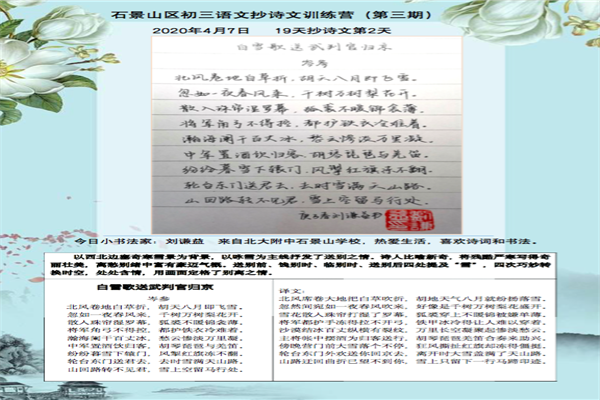 石景山区初三语文抄诗文训练营（第三期）
2020年4月7日 19天抄诗文第2天
白雪歌送武判官归京
岑参
北风卷地白草折，胡天八月即飞雪。
忽如一夜春风来，千树万树梨花开。
散入珠帘湿罗幕，狐裘不暖锦衾薄。
将军角弓不得控，都护铁衣冷难着。
瀚海阑干百丈冰，愁云惨淡万里凝。
中军置酒饮归客，胡琴琵琶与羌笛。
纷纷暮雪下辕门，风掣红旗冻不翻。
轮台东门送君去，去时雪满天山路。
山回路转不见君，雪上空留马行处。
今日小书法家，刘谦益 来自北大附中石景山学校，热爱生活，喜欢诗词和书法。
以西北边塞奇寒雪景为背景，以咏雪为主线抒发了送别之情。诗人比喻新奇，将残酷严寒写得奇
丽壮美，离愁别绪中富有豪迈气概。送别前、饯别时、临别时、送别后四处提及“雪”，四次巧妙转
换时空，处处含情，用画面定格了别离之情。
白雪歌送武判官归京
岑参
北风卷地白草折，胡天八月即飞雪。
忽如一夜春风来，千树万树梨花开。
散入珠帘湿罗幕，狐裘不暖锦衾薄。
将军角弓不得控，都护铁衣冷难着。
瀚海阑干百丈冰，愁云惨淡万里凝。
中军置酒饮归客，胡琴琵琶与羌笛。
纷纷暮雪下辕门，风掣红旗冻不翻。
轮台东门送君去，去时雪满天山路。
山回路转不见君，雪上空留马行处。
译文：
北风席卷大地把白草吹折，胡地天气八月就纷扬落雪。
忽然间宛如一夜春风吹来，好像是千树万树梨花盛开。
雪花散入珠帘打湿了罗幕，狐裘穿上不暖锦被嫌单薄。
将军都护手冻得拉不开弓，铁甲冰冷得让人难以穿着。
沙漠结冰百丈纵横有裂纹，万里长空凝聚着惨淡愁云。
主帅帐中摆酒为归客送行，胡琴琵琶羌笛合奏来助兴。
傍晚辕门前大雪落个不停，红旗冻僵了风也无法牵引。
轮台东门外欢送你回京去，离开时大雪盖满了天山路。
山路迂回曲折已望不到你，雪上只留下一行马蹄印迹。